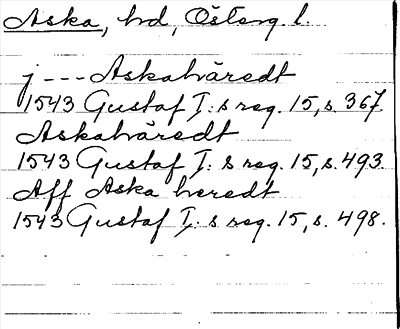 Aska, hd, Österg. l.
j --- Askahäredt
1543 Gustaf I:s reg. 15, s. 367.
Askahäredt
1543 Gustaf I:s reg. 15, s. 493.
Aff Aska heredt
1543 Gustaf I:s reg. 15, s. 498.